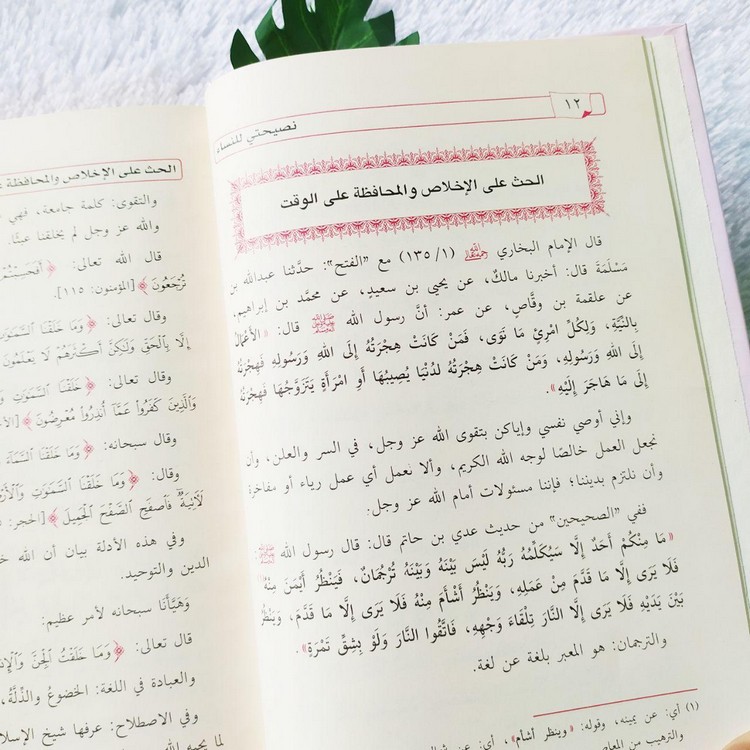 ١٢
نصيحتي للنساء
الحث على الإخلاص والمحافظة على الوقت
قال الإمام البخاري رحمه الله (١/ ١٣٥) مع "الفتح": حدَّثنا عبدالله بن
مَسْلَمَةَ قال: أخبرنا مالكٌ، عن يحيى بن سعيدٍ، عن محمَّد بن إبراهيم،
عن علقمة بن وقَّاصٍ، عن عمر: أنَّ رسول الله ﷺ قال: «الأَعْمَالُ
بِالنِّيَّةِ، وَلِكُلِّ امْرِئٍ مَا نَوَى، فَمَنْ كَانَتْ هِجْرَتُهُ إِلَى اللهِ وَرَسُولِهِ فَهِجْرَتُهُ
إِلَى اللهِ وَرَسُولِهِ، وَمَنْ كَانَتْ هِجْرَتُهُ لدُنْيَا يُصِيبُهَا أَوِ امْرَأَةٍ يَتَزَوَّجُهَا فَهِجْرَتُهُ
إِلَى مَا هَاجَرَ إِلَيْهِ».
وإني أوصي نفسي وإياكن بتقوى الله عز وجل، في السر والعلن، وأن
نجعل العمل خالصًا لوجه الله الكريم، وألا نعمل أي عمل رياء أو مفاخرة
وأن نلتزم بديننا؛ فإننا مسئولات أمام الله عز وجل.
ففي "الصحيحين" من حديث عدي بن حاتم قال: قال رسول الله ﷺ:
«مَا مِنْكُمْ أَحَدٌ إِلَّا سَيُكَلِّمُهُ رَبُّهُ لَيْسَ بَيْنَهُ وَبَيْنَهُ تُرْجُمَانٌ، فَيَنْظُرُ أَيْمَنَ مِنْهُ
فَلَا يَرَى إِلَّا مَا قَدَّمَ مِنْ عَمَلِهِ، وَيَنْظُرُ أَشْأَمَ مِنْهُ فَلَا يَرَى إِلَّا مَا قَدَّمَ، وَيَنْظُرُ
بَيْنَ يَدَيْهِ فَلَا يَرَى إِلَّا النَّارَ تِلْقَاءَ وَجْهِهِ، فَاتَّقُوا النَّارَ وَلَوْ بِشِقِّ تَمْرَةٍ».
والترجمان: هو المعبر بلغة عن لغة.
(١) أي: عن يمينه، وقوله: «وينظر أشأم»، أي: عن
والترهيب من
الحث على الإخلاص والمحافظة
والتقوى: كلمة جامعة، فهي
والله عز وجل لم يخلقنا عبثًا.
قال الله تعالى: ﴿أَفَحَسِبْتُمْ
تُرْجَعُونَ﴾ [المؤمنون: ١١٥].
وقال تعالى: ﴿وَمَا خَلَقْنَا ٱلسَّمَٰوَٰتِ
إِلَّا بِٱلْحَقِّ وَلَٰكِنَّ أَكْثَرَهُمْ لَا يَعْلَمُونَ
وقال تعالى: ﴿خَلَقْنَا ٱلسَّمَٰوَٰتِ
وَٱلَّذِينَ كَفَرُوا۟ عَمَّآ أُنذِرُوا۟ مُعْرِضُونَ﴾
وقال سبحانه: ﴿وَمَا خَلَقْنَا ٱلسَّمَآءَ
وقال: ﴿وَمَا خَلَقْنَا ٱلسَّمَٰوَٰتِ وَٱلْأَرْضَ
لَآتِيَةٌ فَٱصْفَحِ ٱلصَّفْحَ ٱلْجَمِيلَ﴾ [الحجر:
وفي هذه الأدلة بيان أن الله
الدين والتوحيد.
وَهَيَّأَنَا سبحانه لأمر عظيم:
قال تعالى: ﴿وَمَا خَلَقْتُ ٱلْجِنَّ وَٱلْإِنسَ
والعبادة في اللغة: الخضوعُ والذِّلَّةُ،
وفي الاصطلاح: عرفها شيخ الإسلام
لما يحبه الله